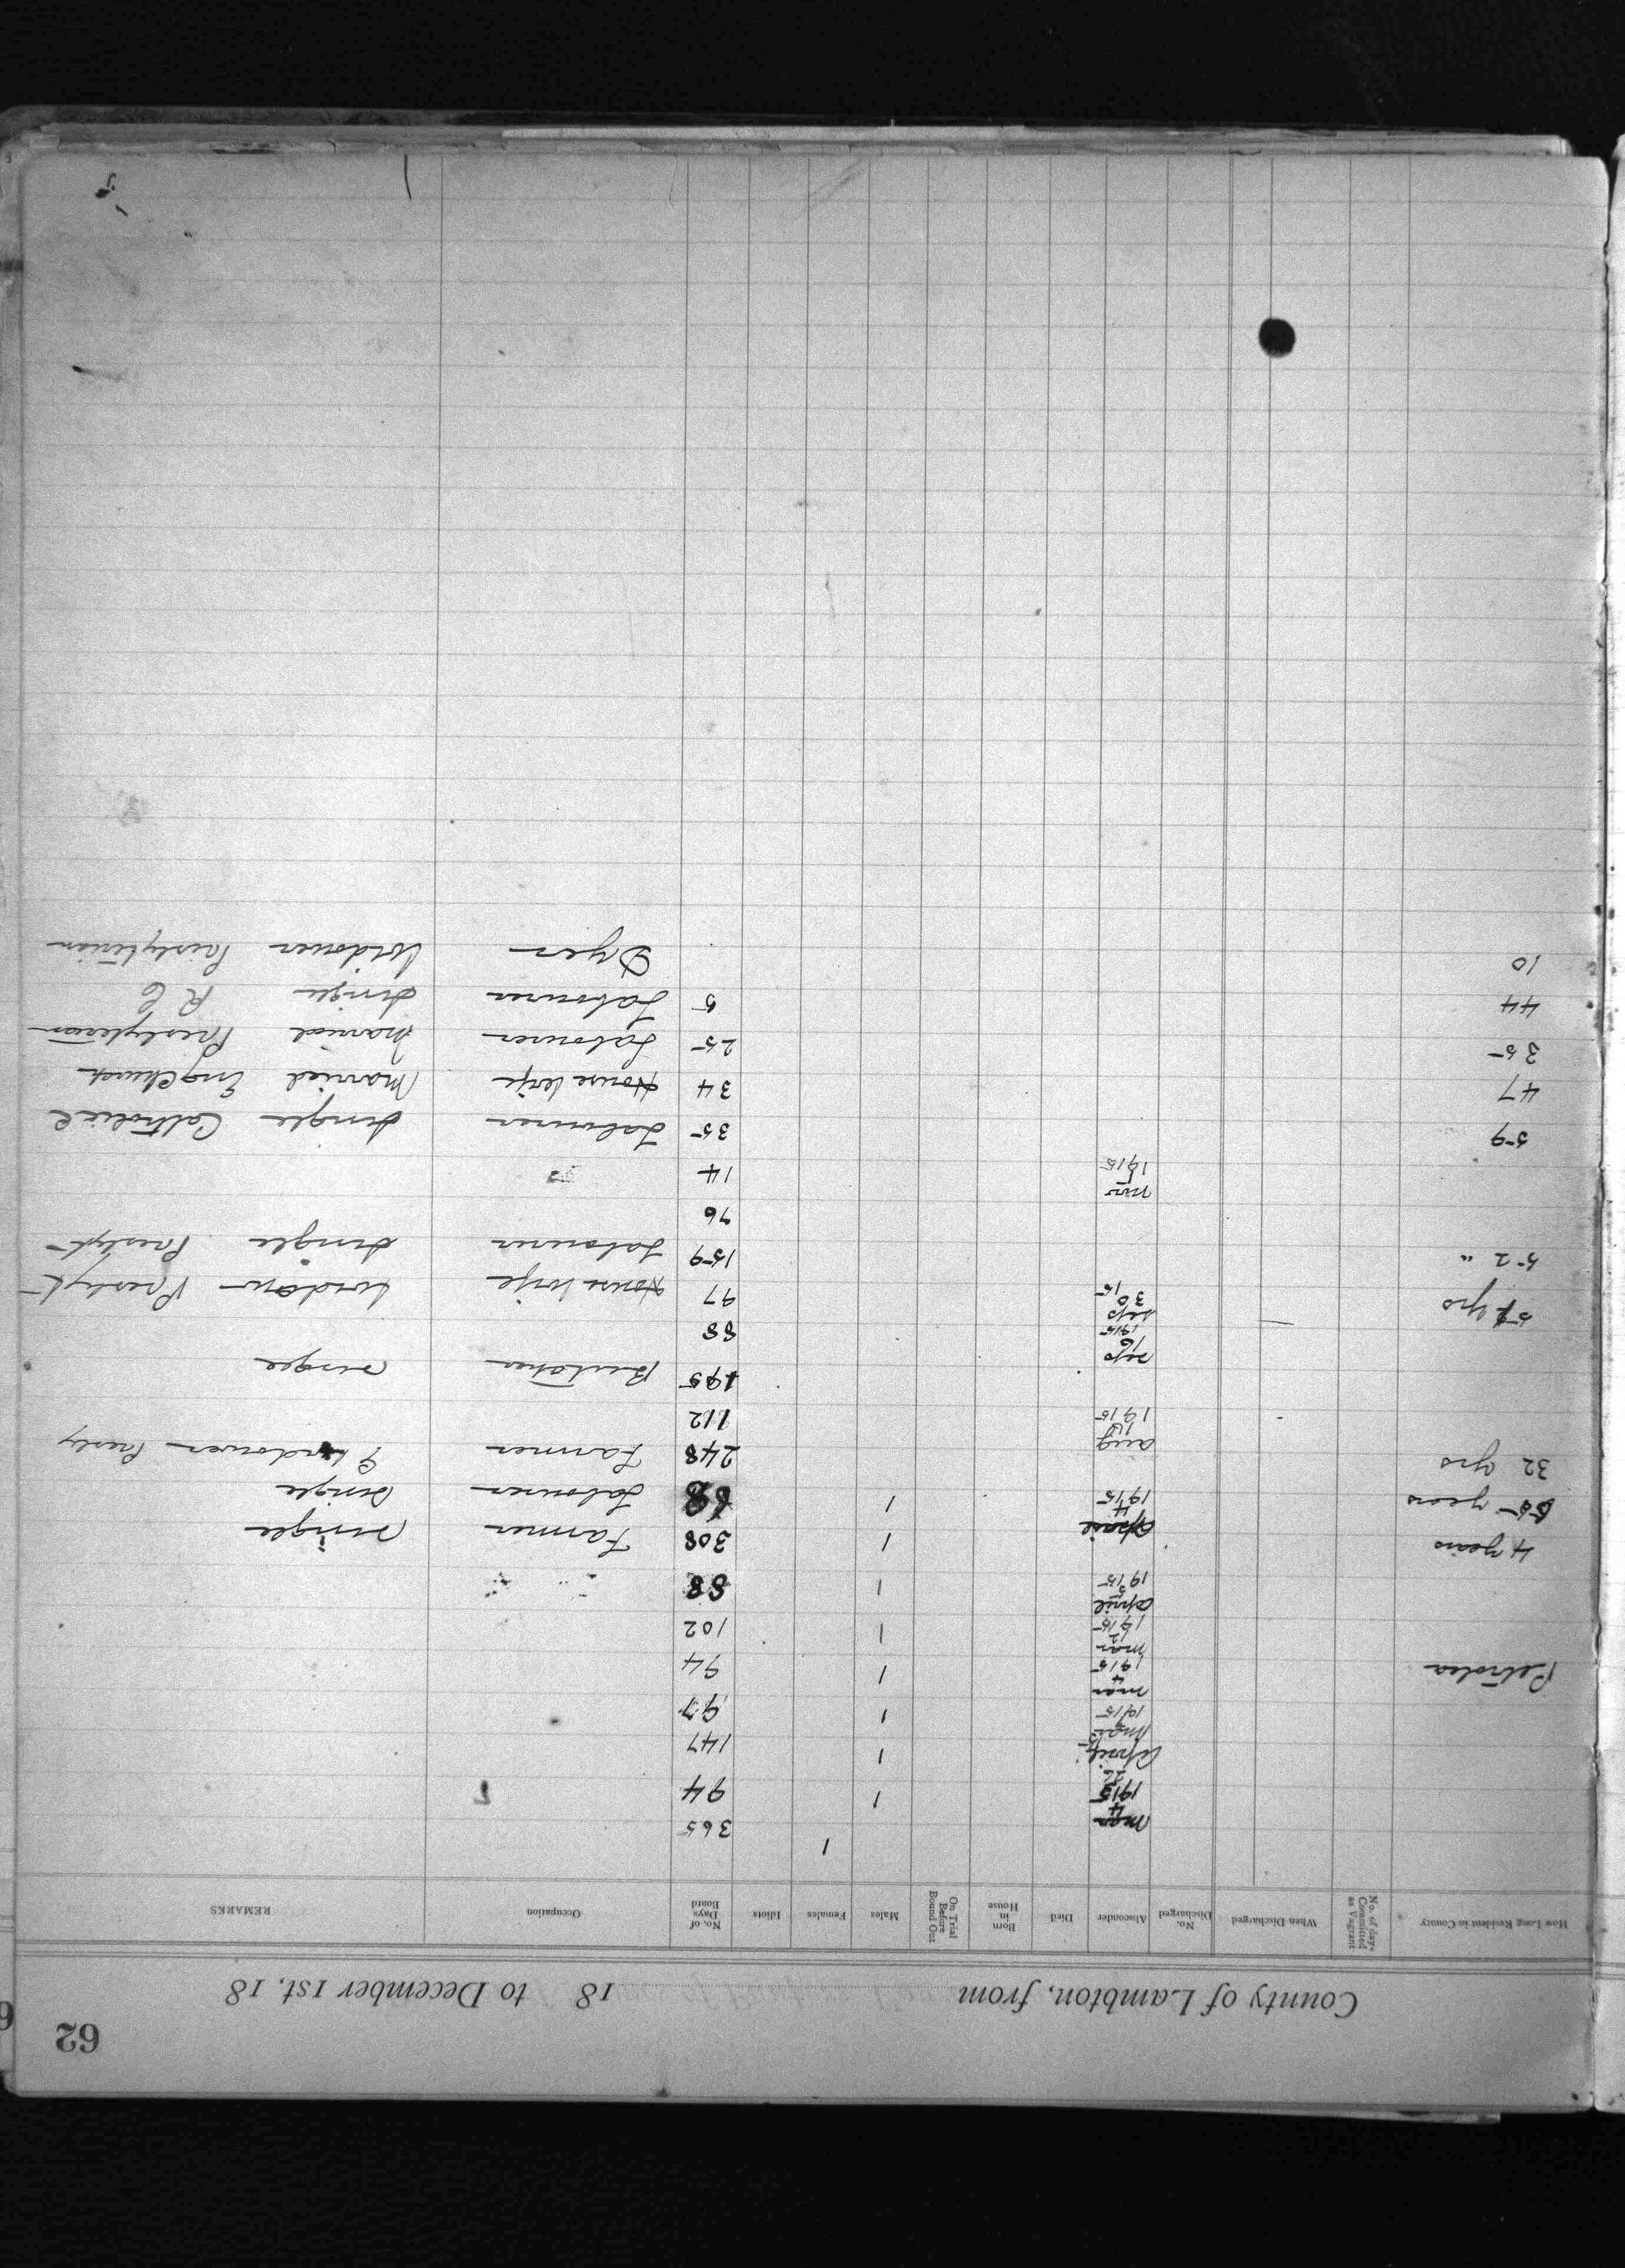 62
County of Lambton, from 18 to December 1st, 18
How Long Resident in County No. of days Committed as Vagrant When Discharged No. Discharged Absconder Died Born in House On Trial Before Bound Out Males Females Idiots No. of Days Board Occupation REMARKS
1 365
Mar 4 1915 1 94
April 26 1 147
Mar 1915 1 97
Petrolea Mar 4 1915 1 94
Mar 12 1915 1 102
April 5 1915 1 88
4 years 1 308 Farmer Single
65 years April 4 1915 1 68 Labourer Single
32 yrs 248 Farmer Widower Presby
Aug 18 1915 112
195 Single
Sep 16 1915 88
57 yrs Sep 30 15 97 House Wife Widow Presbyt
52 " 159 Labourer Single Presbyt
76
Nov 1 1915 14
59 35 Labourer Single Catholic
47 34 House Wife Married Eng Church
35 25 Labourer Married Presbyterian
44 5 Labourer Single R C
10 Dyer Widower Presbyterian